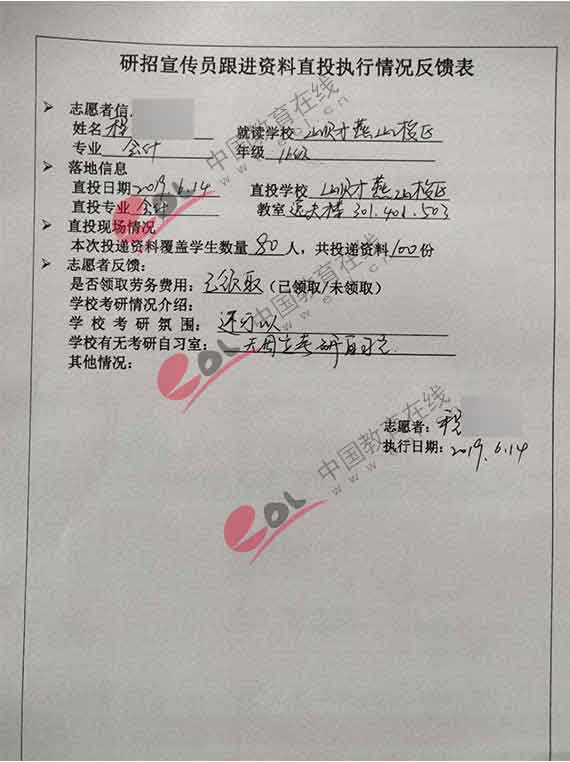 研招宣传员跟进资料直投执行情况反馈表
➢ 志愿者信
姓名 就读学校 山财燕山校区
专业 会计 年级 16级
➢ 落地信息
直投日期 2019.6.14 直投学校 山财燕山校区
直投专业 会计 教室 逸夫楼 301.401.503
➢ 直投现场情况
本次投递资料覆盖学生数量 80 人，共投递资料 100 份
➢ 志愿者反馈：
是否领取劳务费用：已领取（已领取/未领取）
学校考研情况介绍：
学校考研氛围： 还可以
学校有无考研自习室： 考研自习室
其他情况：
志愿者：程
执行日期：2019.6.14
eol 中国教育在线
www.eol.cn
eol 中国教育在线
www
eol 中国教育在线
www